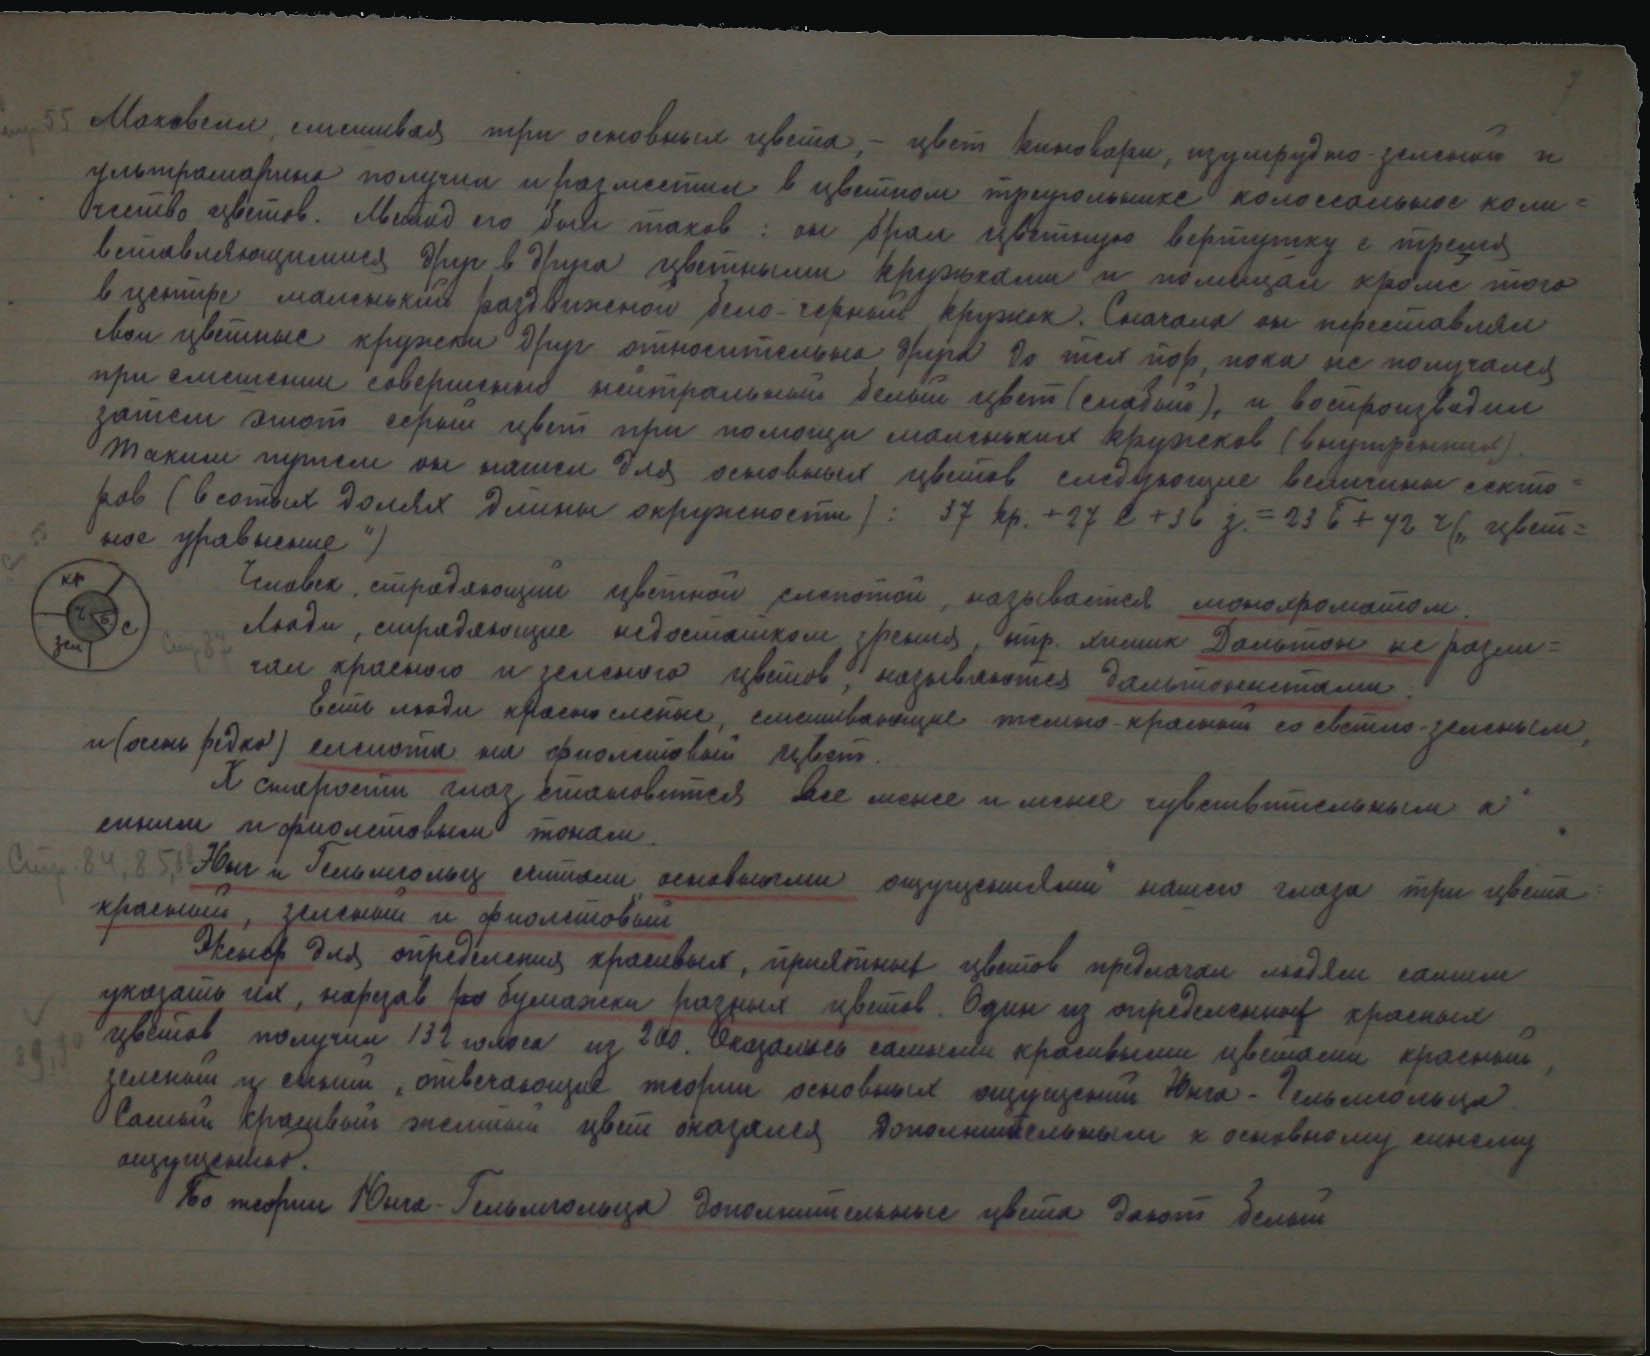 7
стр. 55 Максвелл, смешивая три основных цвета, – цвет киновари, изумрудно-зеленый и
ультрамарина получил и разместил в цветном треугольнике колоссальное коли=
чество цветов. Метод его был таков: он брал цветную вертушку с тремя
вставляющимися друг в друга цветными кружками и помещал кроме того
в центре маленький раздвижной бело-черный кружок. Сначала он переставлял
цветные кружки друг относительно друга до тех пор, пока не получался
при смешении совершенно нейтральный белый цвет (слабый), и воспроизводил
затем этот серый цвет при помощи маленьких кружков (внутренних).
Таким путем он нашел для основных цветов следующие величины секто=
ров (в сотых долях длины окружности): 37 кр. + 27 с + 36 з. = 23 б + 72 ч („цвет=
ное уравнение")
кр
ч б с
зел
Человек, страдающий цветной слепотой, называется монохроматом.
Стр 87 Люди, страдающие недостатком зрения, нпр. химик Дальтон не разли=
чал красного и зеленого цветов, называются дальтонистами.
Есть люди краснослепые, смешивающие темно-красный со светло-зеленым,
и (очень редко) слепота на фиолетовый цвет.
К старости глаз становится все менее и менее чувствительным к
синим и фиолетовым тонам.
Стр. 84, 85, Юнг и Гельмгольц считали „основными ощущениями" нашего глаза три цвета:
красный, зеленый и фиолетовый
Экснер для определения красивых, приятных цветов предлагал людям самим
указать их, нарезав бумажки разных цветов. Один из определенных красных
89, 90 цветов получил 132 голоса из 200. Оказались самыми красивыми цветами красный,
зеленый и синий, отвечающие теории основных ощущений Юнга-Гельмгольца.
Самый красивый желтый цвет оказался дополнительным к основному синему
ощущению.
По теории Юнга-Гельмгольца дополнительные цвета дают белый